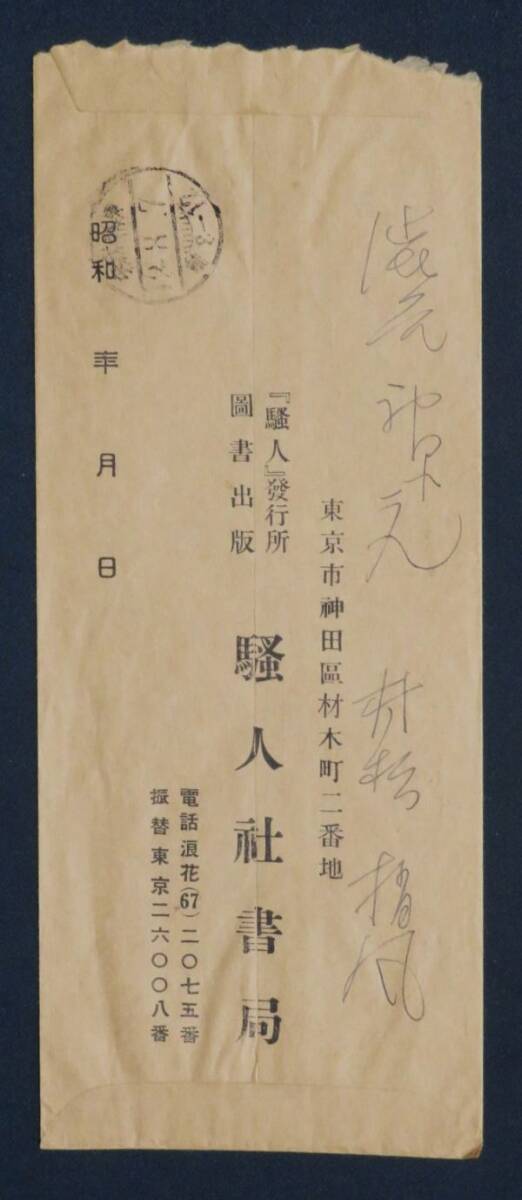 村松梢風
東京市神田區材木町二番地
『騷人』發行所
圖書出版
騷人社書局
電話浪花(67)二〇七五番
振替東京二六〇〇八番
昭和 年 月 日